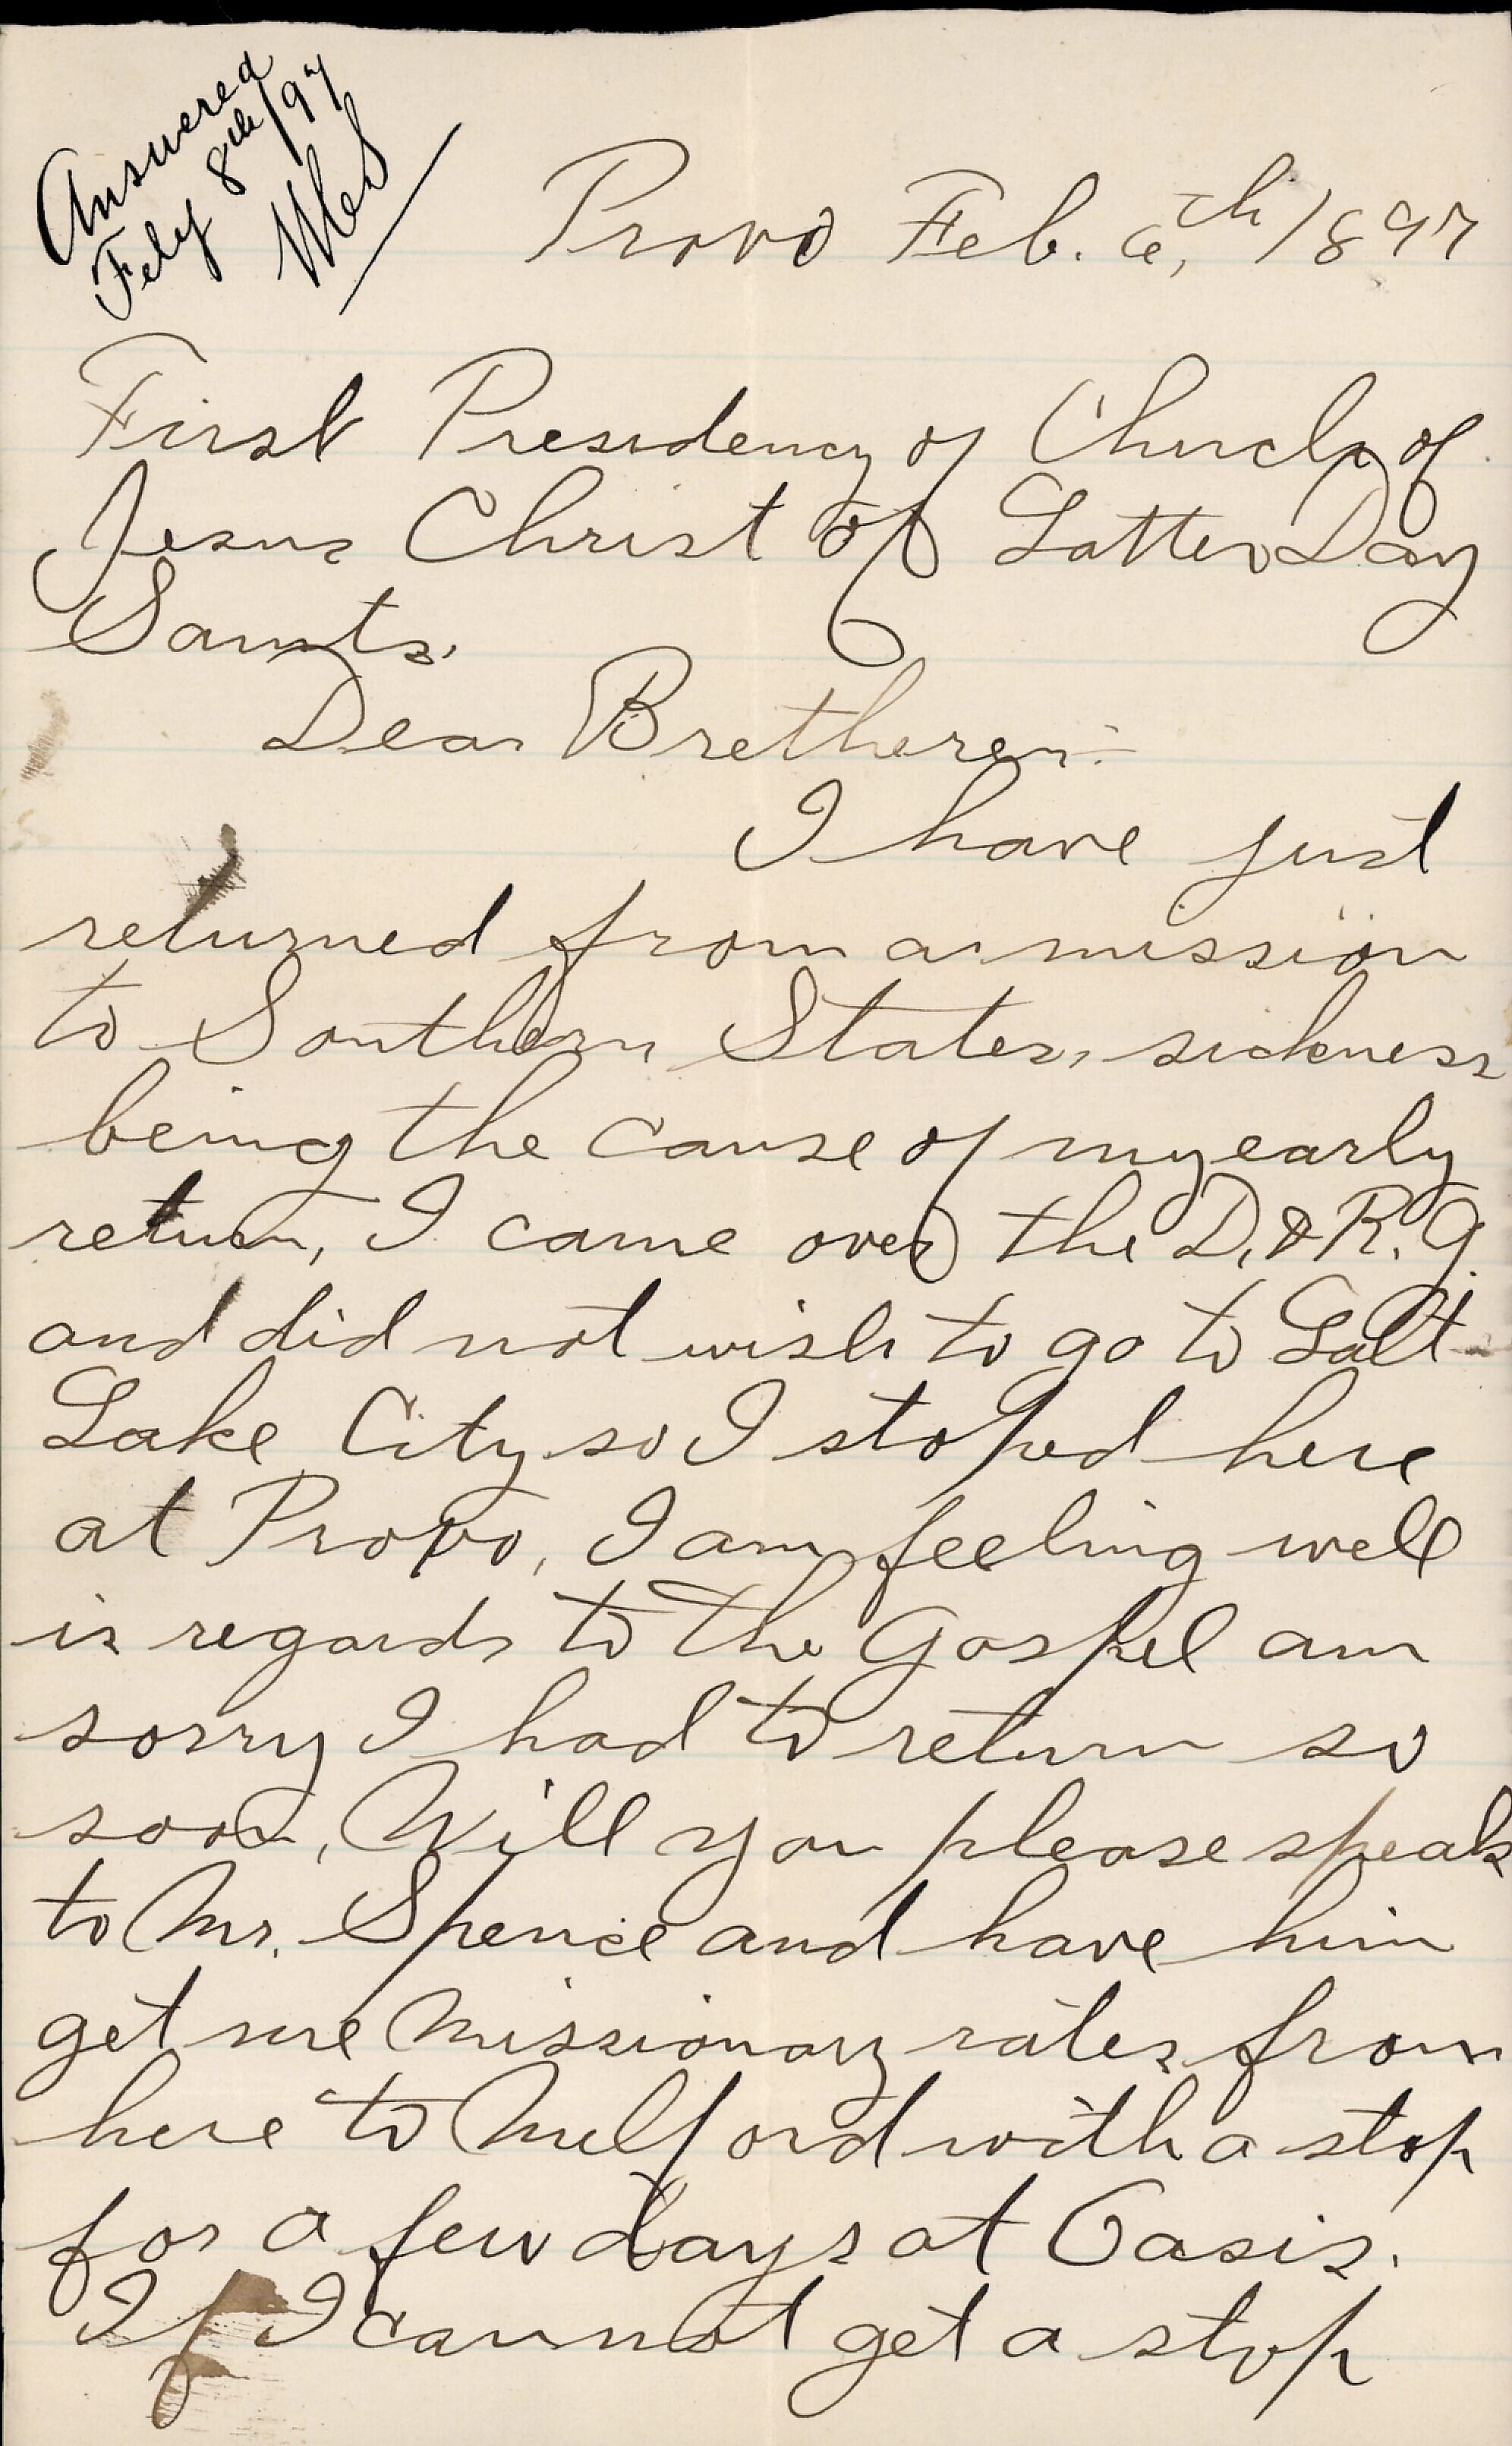 Answered
Feby 8th/97
Provo Feb. 6,th 1897
First Presidency of Church of
Jesus Christ of Latter Day
Saints.
Dear Bretheren:-
I have just
returned from a mission
to Southern States, sickness
being the cause of my early
return, I came over the D. & R. G.
and did not wish to go to Salt
Lake City so I stoped here
at Provo, I am feeling well
in regards to the Gospel am
sorry I had to return so
soon, Will you please speak
to Mr. Spence and have him
get me Missionary rates from
here to Milford with a stop
for a few days at Oasis.
If I cannot get a stop